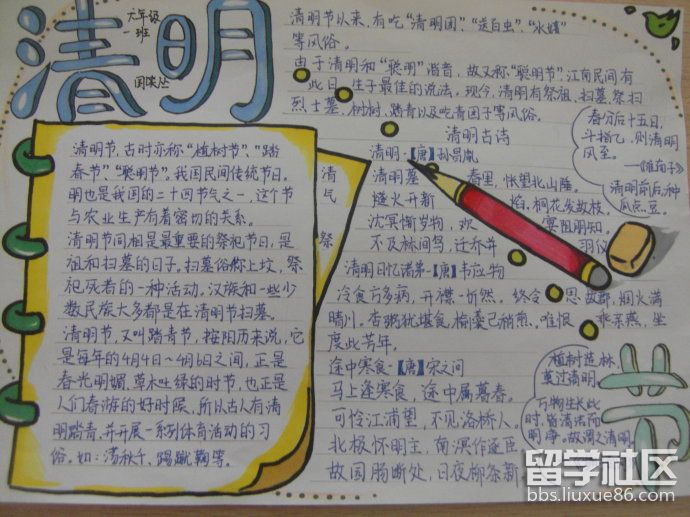 清明
六年级
一班
清明节,古时亦称“植树节”、“踏
春节”、“聪明节”。我国民间传统节日。
明也是我国的二十四节气之一,这个节
与农业生产有着密切的关系。
清明节同祖是最重要的祭祀节日,是
祖和扫墓的日子。扫墓俗称上坟,祭
祀死者的一种活动。汉族和一些少
数民族大多都是在清明节扫墓。
清明节,又叫踏青节,按阳历来说,它
是每年的4月4日~4月6日之间,正是
春光明媚,草木吐绿的时节,也正是
人们春游的好时候,所以古人有清
明踏青,并开展一系列体育活动的习
俗。如:荡秋千、踢蹴鞠等。
清
民
祭
清明节以来,有吃“清明团”、“送白虫”、
等风俗。
由于清明和“聪明”谐音,故又称“聪明节”,江南民间有
此日生子最佳的说法。现今,清明有祭祖、扫墓、祭扫
烈士墓、树树、踏青以及吃青团子等风俗。
清明古诗
清明·【唐】孙昌胤
清明暮春里,怅望北山陲。
燧火开新焰,桐花发故枝。
沈冥惭岁物,欢宴阻朋知。
不及林间鸟,迁乔并羽仪
清明日忆诸弟·【唐】韦应物
冷食方多病,开襟一忻然。终令思故郡,烟火满
晴川。杏粥犹堪食,榆羹已稍煎。唯恨乖亲燕,坐
度此芳年。
途中寒食·【唐】宋之问
马上逢寒食,途中属暮春。
可怜江浦望,不见洛桥人。
北极怀明主,南溟作逐臣
故园肠断处,日夜柳条新
春分后十五日,
斗指乙,则清明
风至。
——《淮南子》
清明前后,种
瓜点豆。
植树造林,
莫过清明。
万物生长此
时,皆清洁而
明净。故谓之清明。
节
留学社区
bbs.liuxue86.com